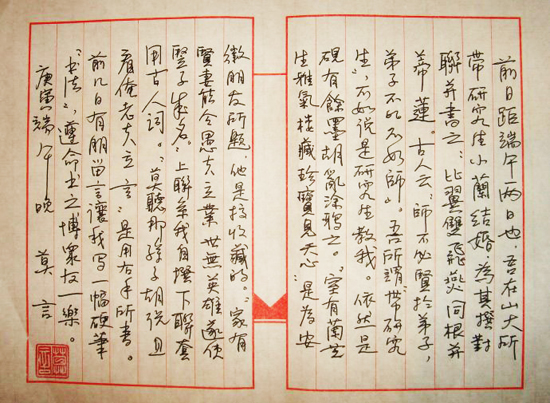 前日距端午两日也,吾在山大所
带研究生小蘭結婚,为其撰对
聯并書之:比翼雙飛燕同根并
蒂蓮。古人云:師不必賢於弟子,
弟子不必不如師。吾所謂带研究
生,不如说是研究生教我。依然是
硯有餘墨胡亂涂鴉之。"室有蘭芝
生雅氣楼藏珍寶見天心"是为安
徽朋友所题,他是搞收藏的。"家有
賢妻能令愚夫立業世無英雄遂使
竖子成名"上聯系我自撰下聯套
用古人词。"莫聽那孫子胡说且
看俺老夫立言"是用右手所書。
前几日有朋留言讓我写一幅硬筆
"书法",遵命书之博众友一樂。
庚寅端午晚 莫言